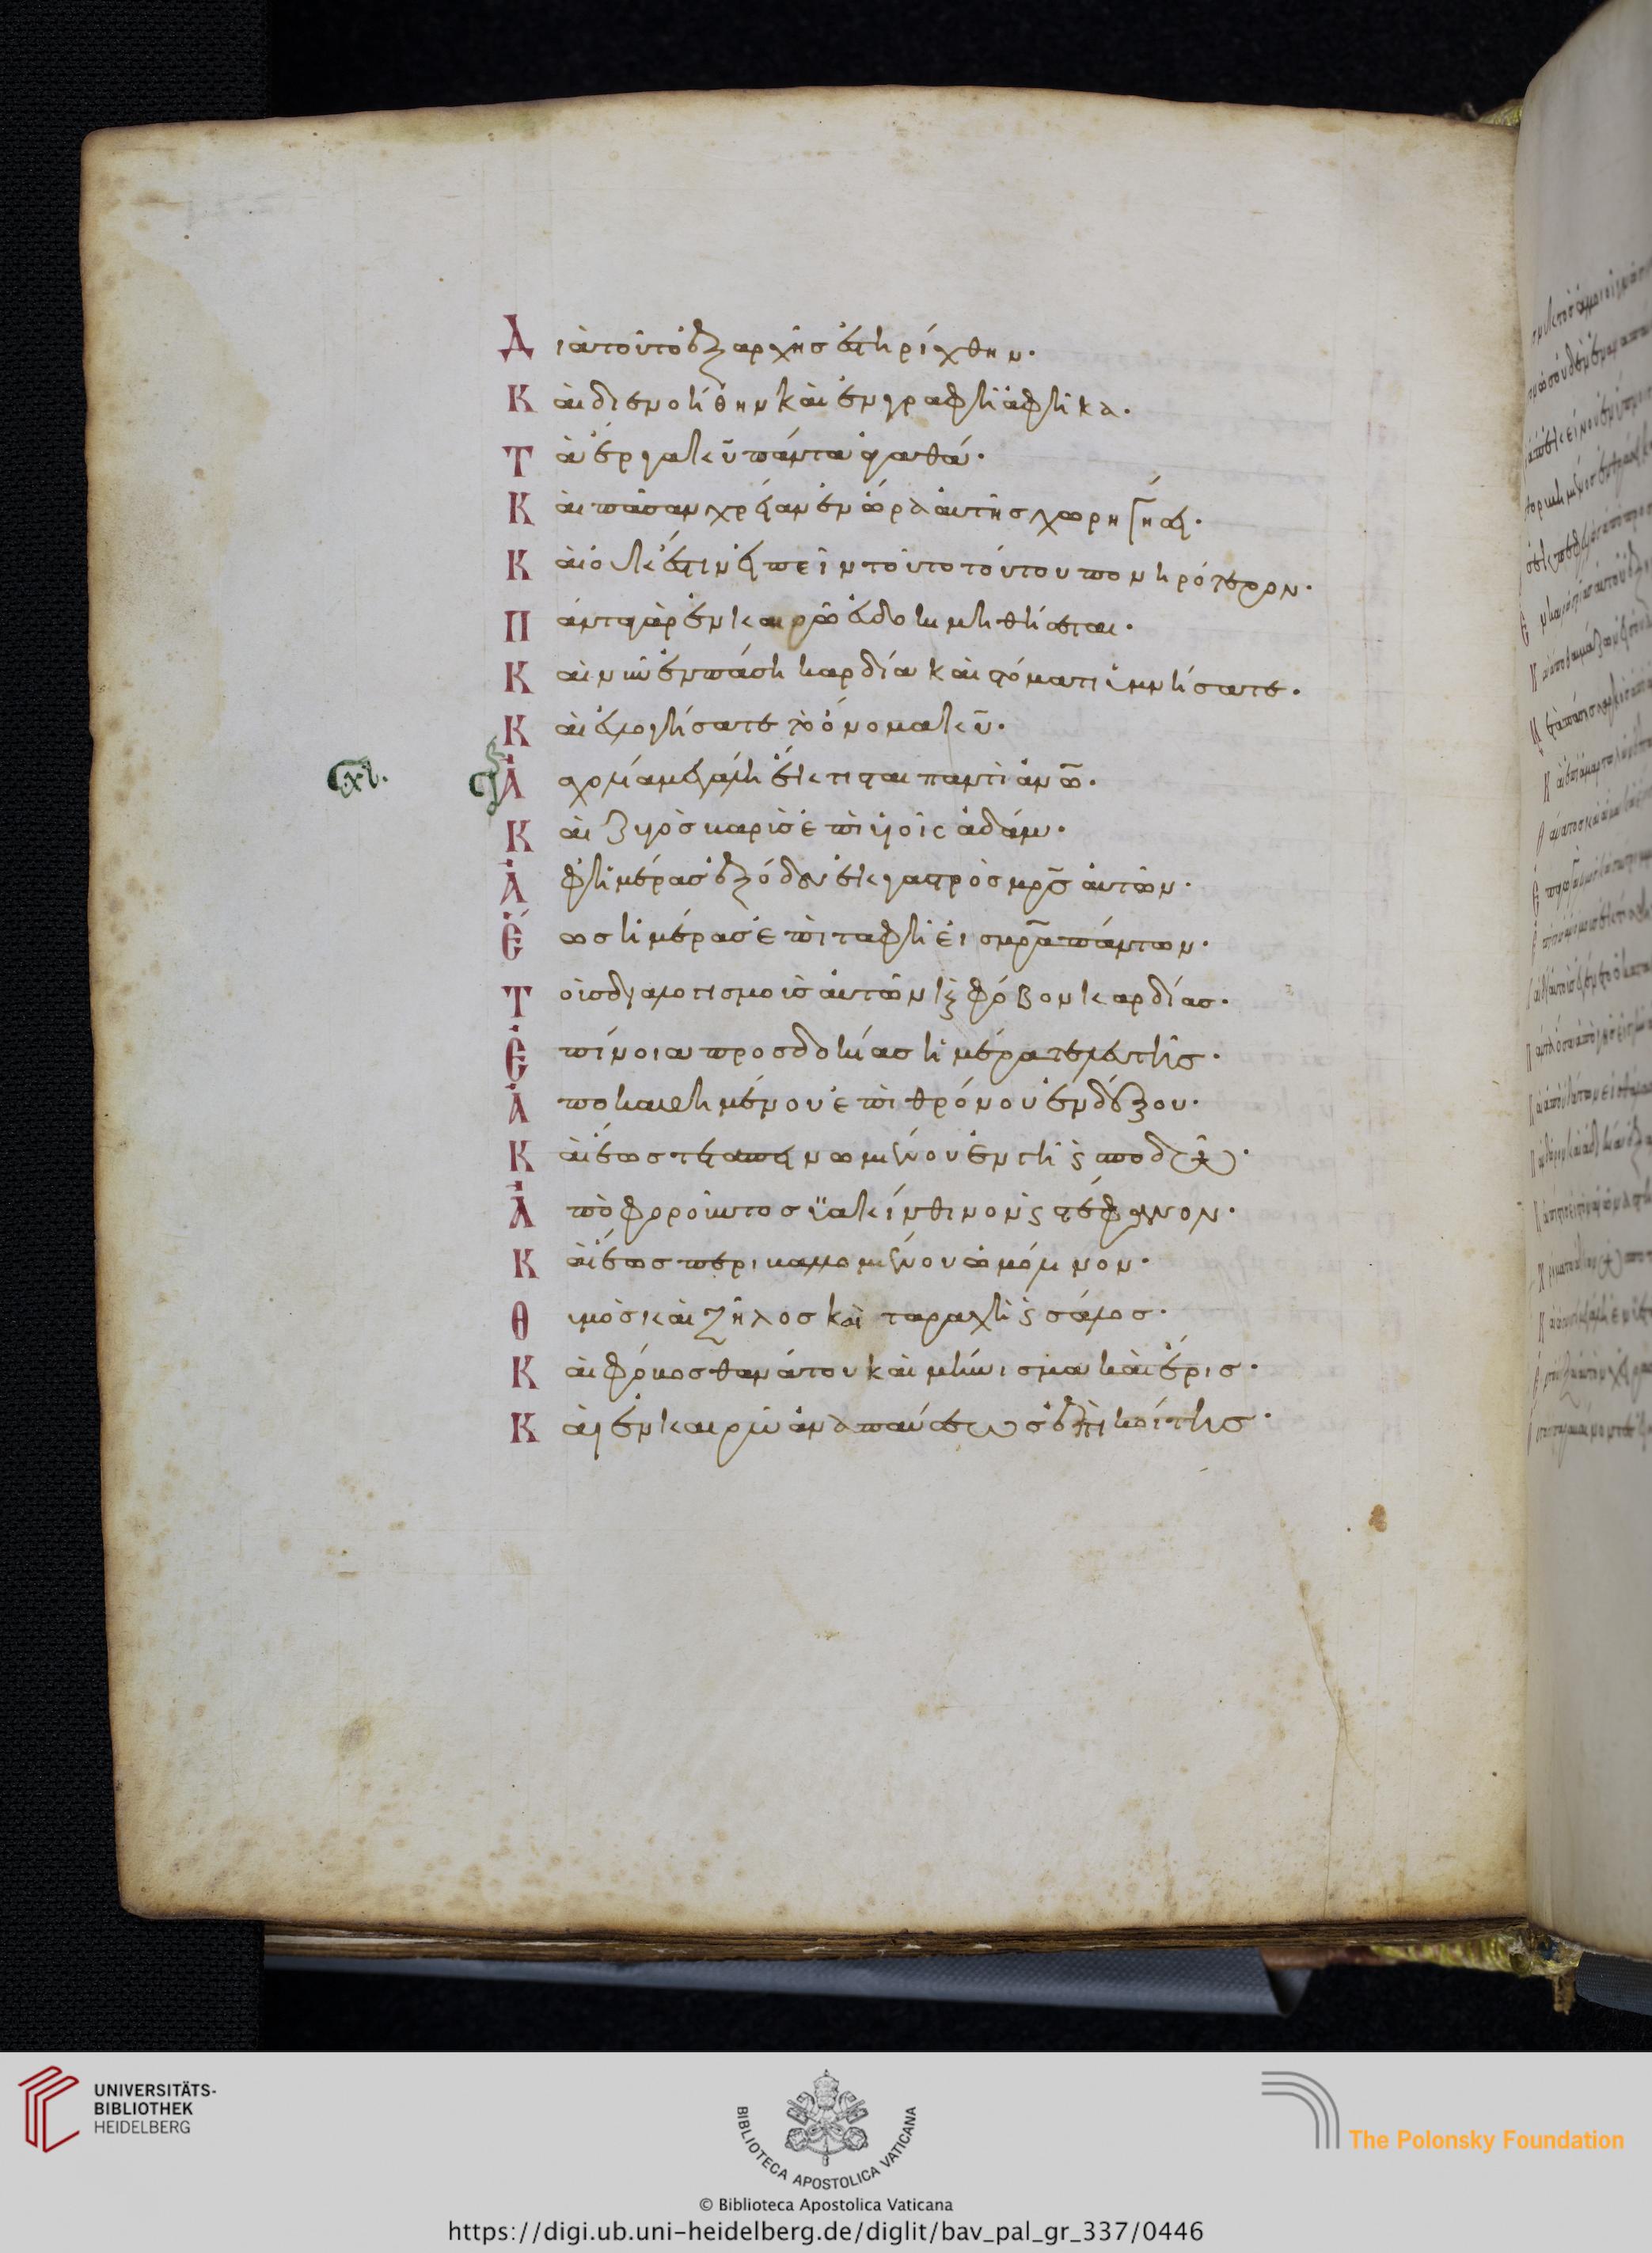 Διὰ τοῦτο ἐξ ἀρχῆς ἐστηρίχθην·
Καὶ διενοήθην καὶ ἐν γραφῇ ἀφῆκα·
Τὰ ἔργα κ̅υ̅ πάντα ἀγαθά·
Καὶ πᾶσαν χρείαν ἐν ὥρα αὐτῆς χωρηγήσει·
Καὶ οὐκ ἔστιν εἰπεῖν τοῦτο τούτου πονηρότερον·
Πάντα γὰρ ἐν καιρῶ εὐδοκιμηθήσεται·
Καὶ νῦν ἐν πάση καρδία καὶ στόματι ὑμνήσατε·
Καὶ εὐλογήσατε τὸ ὄνομα κ̅υ̅·
Ἀσχολία μεγάλη ἔκτισται παντὶ ἀν̅ω̅·
Καὶ ζυγὸς βαρὺς ἐπὶ υἱοῖς ἀδάμ·
Ἀφ ἡμέρας ἐξόδου ἐκ γαστρὸς μρ̅ς̅ αὐτῶν·
Ἕως ἡμέρας ἐπὶ ταφῆ εἰς μρ̅α̅ πάντων·
Τοὺς διαλογισμοὺς αὐτῶν καὶ φόβον καρδίας·
Ἐπίνοια προσδοκίας ἡμέρα τελευτῆς·
Ἀπὸ καθημένου ἐπὶ θρόνου ἐνδόξου·
Καὶ ἕως τεταπεινωμένου ἐν γῆ καὶ σποδῶ·
Ἀπὸ φοροῦντος ὑακίνθινον καὶ στέφανον·
Καὶ ἕως περιβαλλομένου ὠμόλινον·
Θυμὸς καὶ ζῆλος καὶ ταραχὴ καὶ σάλος·
Καὶ φόβος θανάτου καὶ μήνισμα καὶ ἔρις·
Καὶ ἐν καιρῶ ἀναπαύσεως ἐπὶ κοίτης·
UNIVERSITÄTS-
BIBLIOTHEK
HEIDELBERG
BIBLIOTECA APOSTOLICA VATICANA
The Polonsky Foundation
© Biblioteca Apostolica Vaticana
https://digi.ub.uni-heidelberg.de/diglit/bav_pal_gr_337/0446